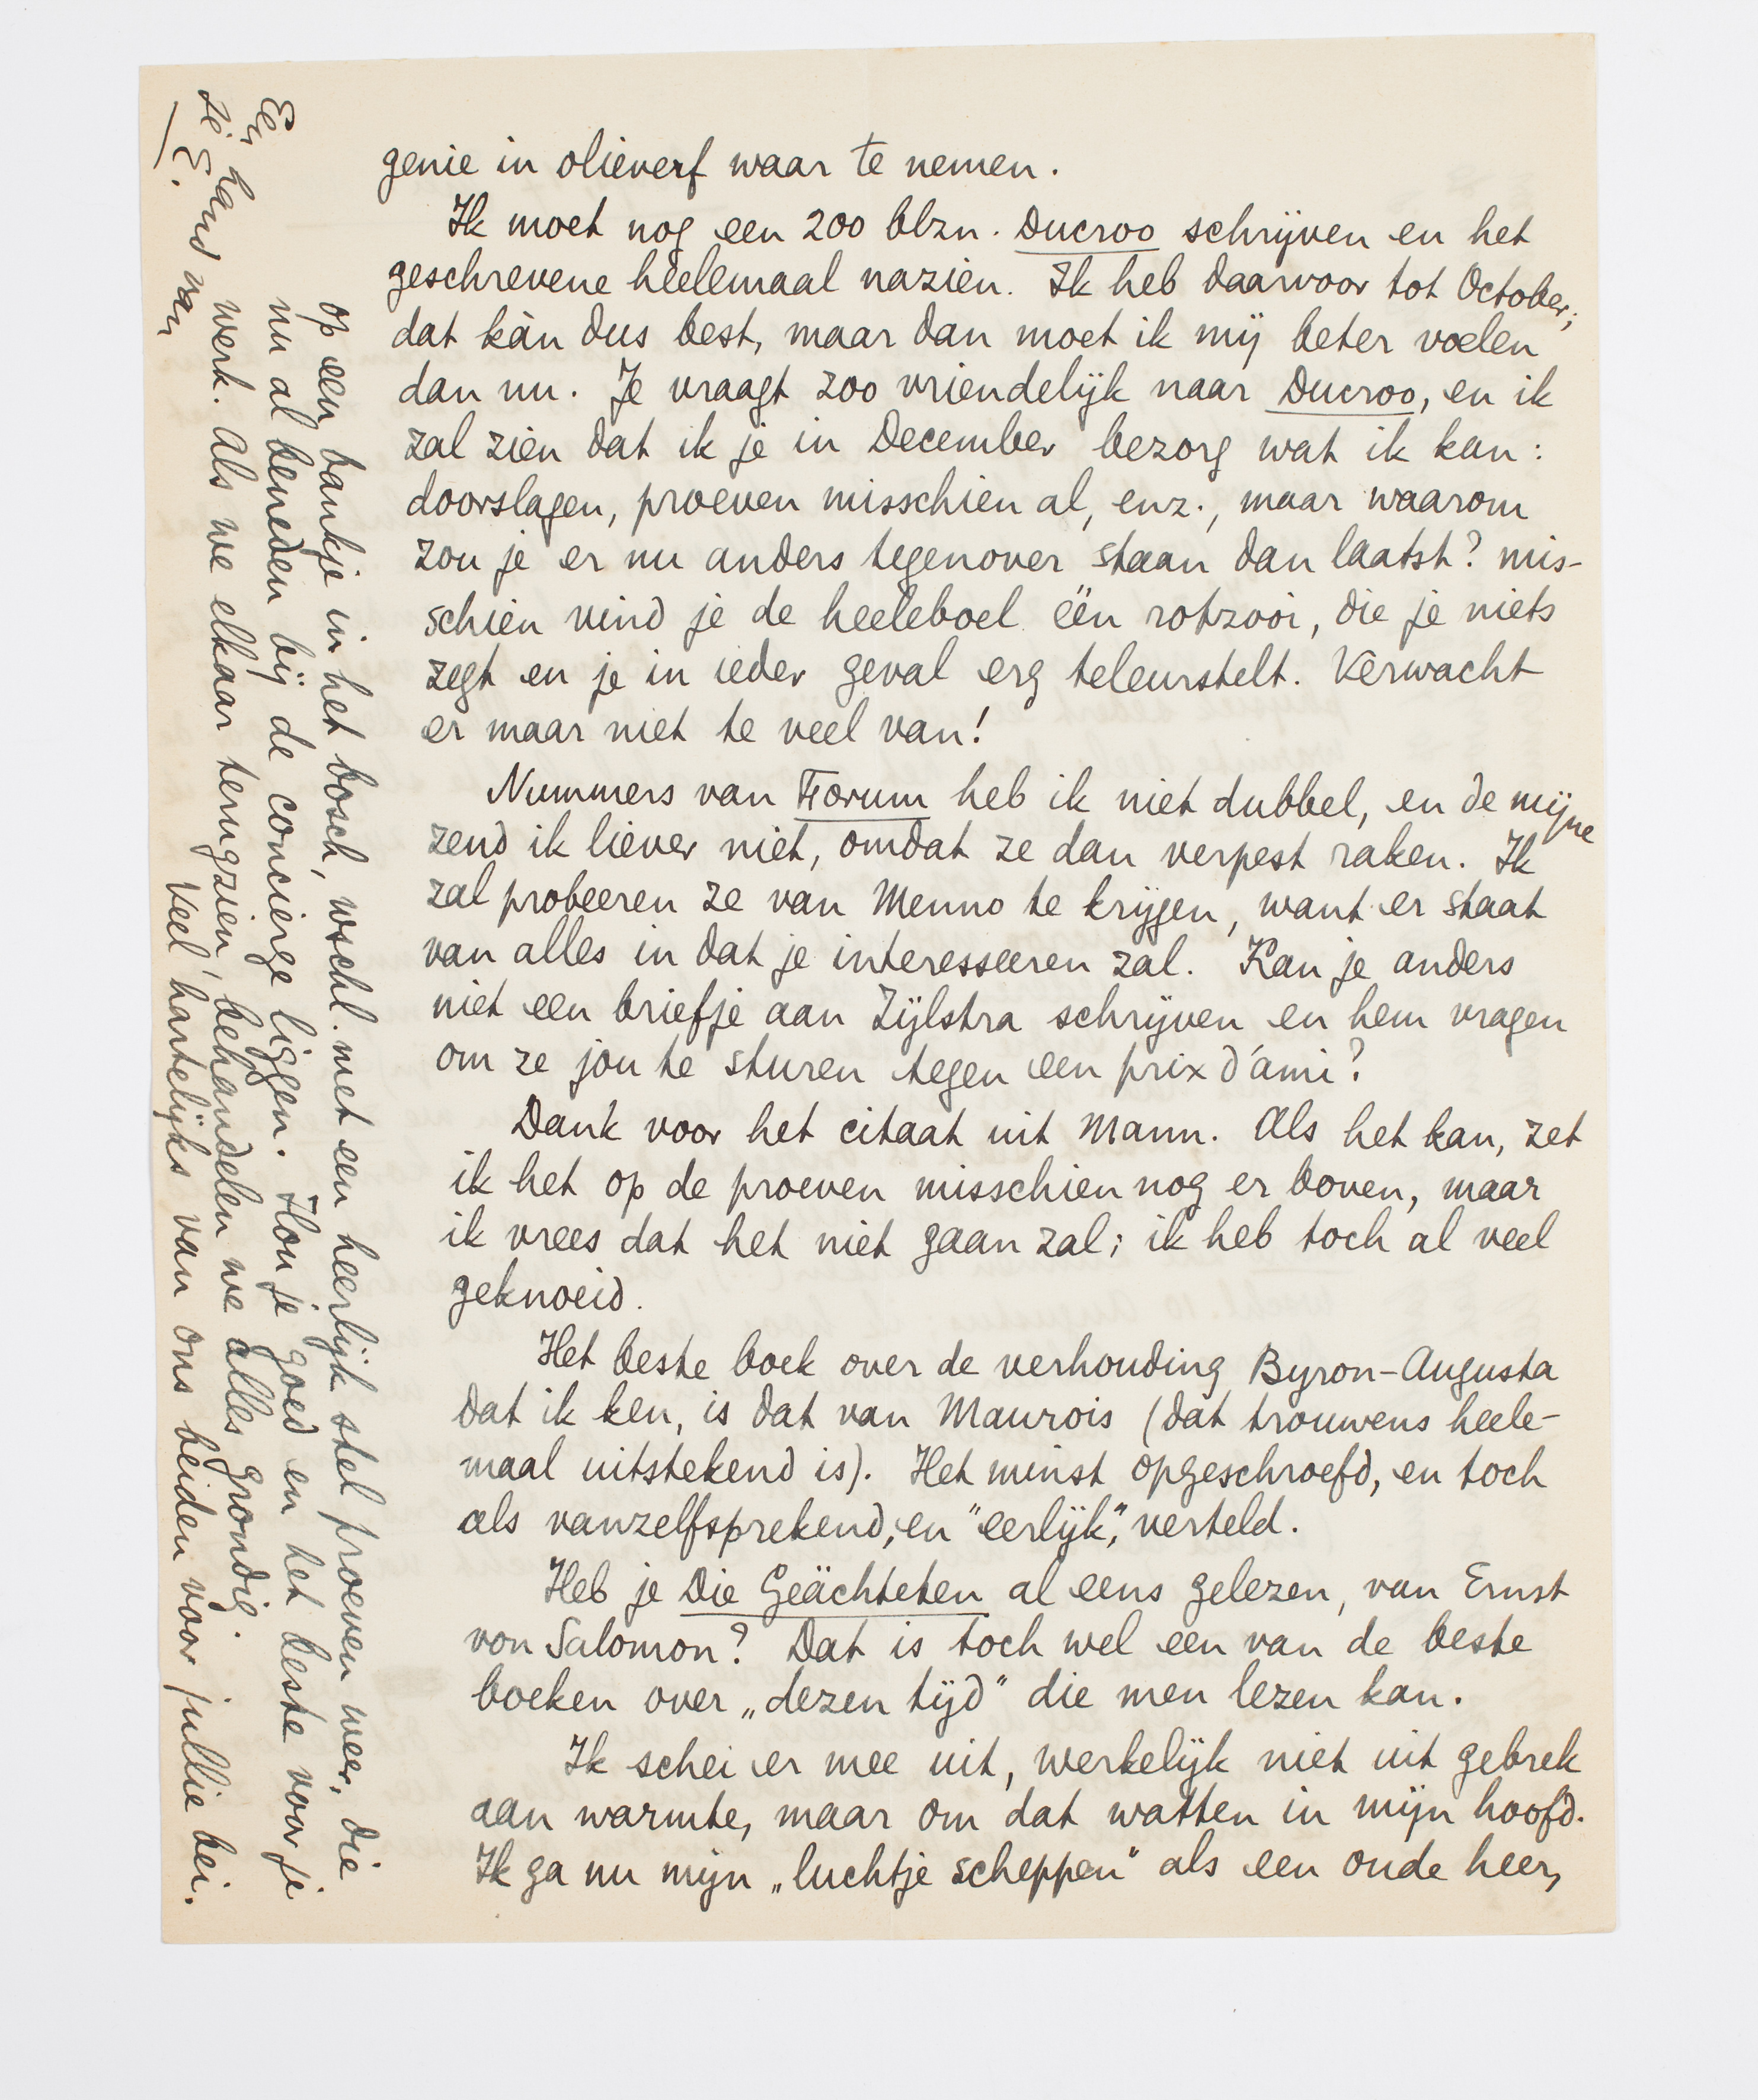 genie in olieverf waar te nemen.
Ik moet nog een 200 blzn. Ducroo schrijven en het
geschrevene heelemaal nazien. Ik heb daarvoor tot October;
dat kàn dus best, maar dan moet ik mij beter voelen
dan nu. Je vraagt zoo vriendelijk naar Ducroo, en ik
zal zien dat ik je in December bezorg wat ik kan:
doorslagen, proeven misschien al, enz., maar waarom
zou je er nu anders tegenover staan dan laatst? mis-
schien vind je de heeleboel één rotzooi, die je niets
zegt en je in ieder geval erg teleurstelt. Verwacht
er maar niet te veel van!
Nummers van Forum heb ik niet dubbel, en de mijne
zend ik liever niet, omdat ze dan verpest raken. Ik
zal probeeren ze van Menno te krijgen, want er staat
van alles in dat je interesseeren zal. Kan je anders
niet een briefje aan Zijlstra schrijven en hem vragen
om ze jou te sturen tegen een prix d'ami?
Dank voor het citaat uit Mann. Als het kan, zet
ik het op de proeven misschien nog er boven, maar
ik vrees dat het niet gaan zal; ik heb toch al veel
geknoeid.
Het beste boek over de verhouding Byron-Augusta
dat ik ken, is dat van Maurois (dàt trouwens heele-
maal uitstekend is). Het minst opgeschroefd, en toch
als vanzelfsprekend, en "eerlijk", verteld.
Heb je Die Geächteten al eens gelezen, van Ernst
von Salomon? Dat is toch wel een van de beste
boeken over „dezen tijd" die men lezen kan.
Ik schei er mee uit, werkelijk niet uit gebrek
aan warmte, maar om dat watten in mijn hoofd.
Ik ga nu mijn „luchtje scheppen" als een oude heer,
op een bankje in het bosch, wschl. met een heerlijk stel proeven weer, die
nu al beneden bij de concierge liggen. Hou je goed en het beste voor je
werk. Als we elkaar terugzien, behandelen we alles grondig.
Veel hartelijks van ons beiden voor jullie bei.
Een hand van
je E.